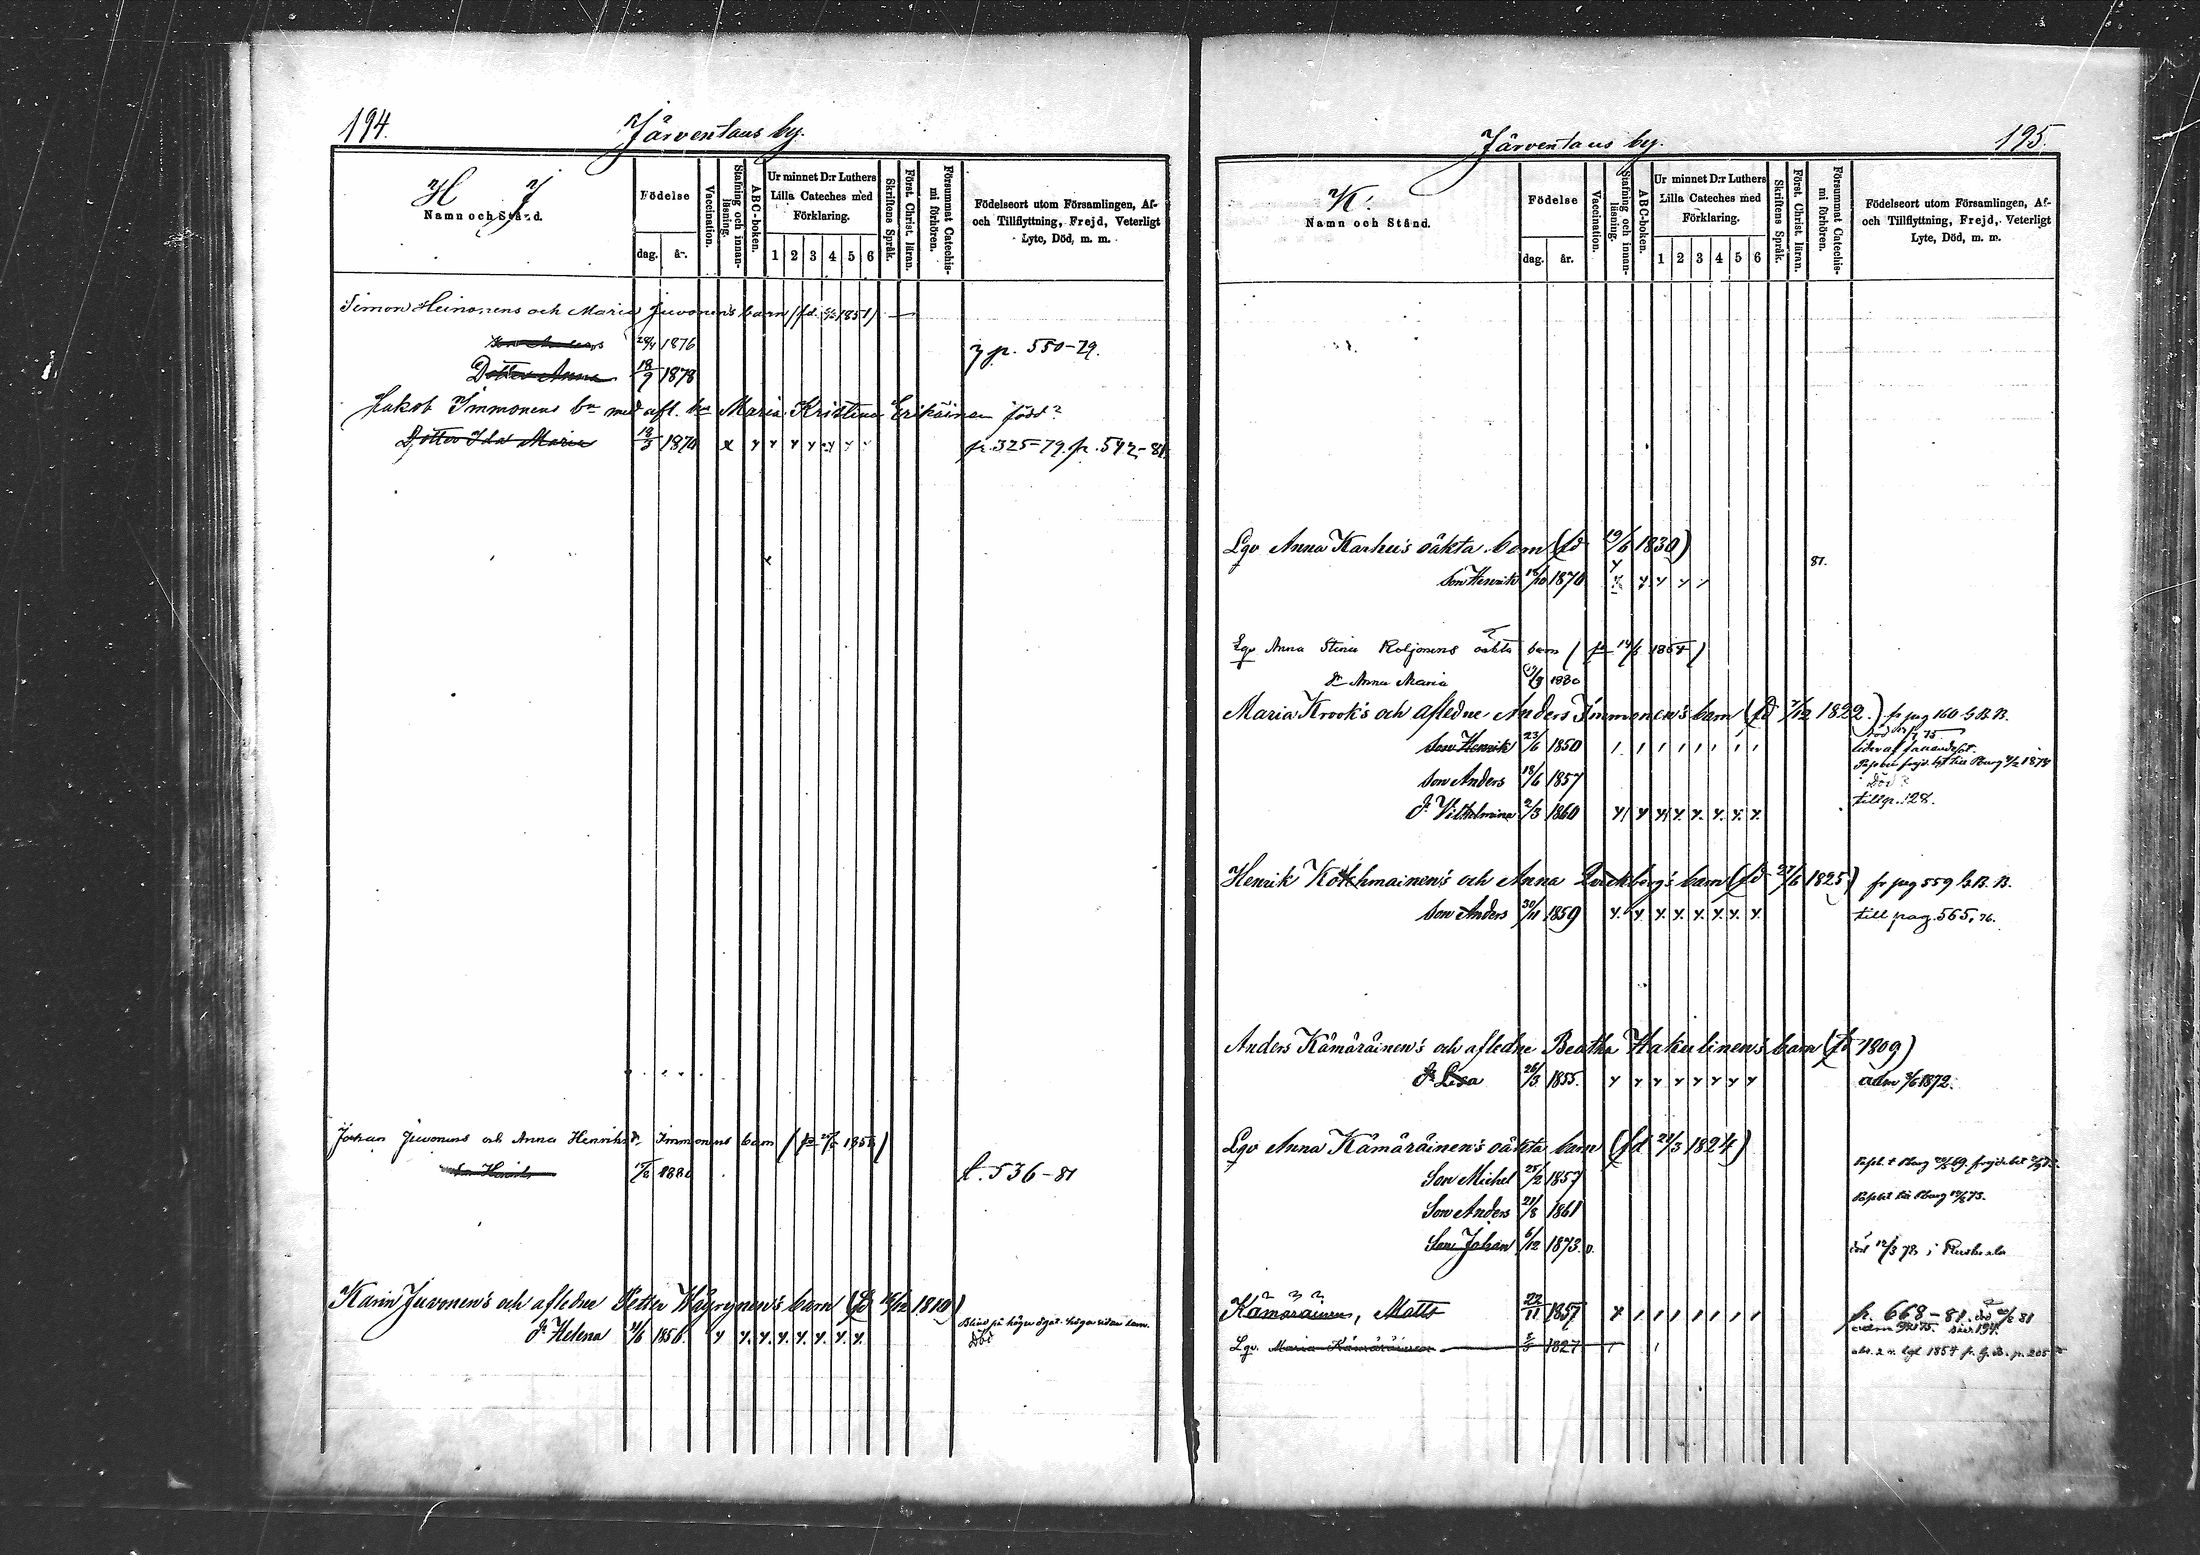 194.
Järventaus by.
H J
Namn och Stånd.
Födelse
dag. år.
Vaccination.
Stafning och innan-
läsning.
ABC-boken.
Ur minnet D:r Luthers
Lilla Cateches med
Förklaring.
1 2 3 4 5 6
Skriftens Språk.
Först. Christ. läran.
Försummat Catechis-
mi förhören.
Födelseort utom Församlingen, Af-
och Tillflyttning, Frejd, Veterligt
Lyte, Död, m. m.
Simon Heinonens och Maria Juvonen's barn (fd. 1851)
1876 p. 550-79.
Dotter Anna 18/9 1878
Jakob Immonens bn med afl. hu Maria Kristina Erikäinen född?
Dotter Ida Maria 18/3 1870 p. 325-79. p. 542-81.
Johan Juvonens och Anna Henriksdr Immonens barn
Henrik t. 536-81
Karin Juvonen's och afledne Petter Häyrynen's barn (fd 1810)
dr Helena 1856. Blind på högra ögat.
Död
Järventaus by.
195.
K.
Namn och Stånd.
Födelse
dag. år.
Vaccination.
Stafning och innan-
läsning.
ABC-boken.
Ur minnet D:r Luthers
Lilla Cateches med
Förklaring.
1 2 3 4 5 6
Skriftens Språk.
Först. Christ. läran.
Försummat Catechis-
mi förhören.
Födelseort utom Församlingen, Af-
och Tillflyttning, Frejd, Veterligt
Lyte, Död, m. m.
Lqv Anna Karhu's oäkta barn (fd 19/6 1830)
81.
Son Henrik 18/10 1870
Lqv Anna Stina Koljonens oäkta barn
dr Anna Maria 1880
Maria Krook's och afledne Anders Immonen's barn (fd 7/12 1822.) fr pag 160 h B. B.
Son Henrik 23/6 1850
Son Anders 18/6 1857
Död?
dr Vilhelmina 2/3 1860 till p. 128.
Henrik Kothmainen's och Anna barn (fd 27/6 1825) fr pag 559 h B. B.
Son Anders 30/11 1859 till pag. 565, 76.
Anders Kämäräinen's och afledne Beatha Hakulinen's barn (fd 1809)
dr Lisa 26/3 1855. adm 1872.
Lqv Anna Kämäräinen's oäkta barn (fd 22/3 1824)
Son Michel 25/2 1857
Son Anders 21/8 1861
Son Johan 6/12 1873. död 12/3 78 i Ruskeala
Kämäräinen, Matts 22/11 1857 p. 668-81.
Lqv. Maria Kämäräinen 1827